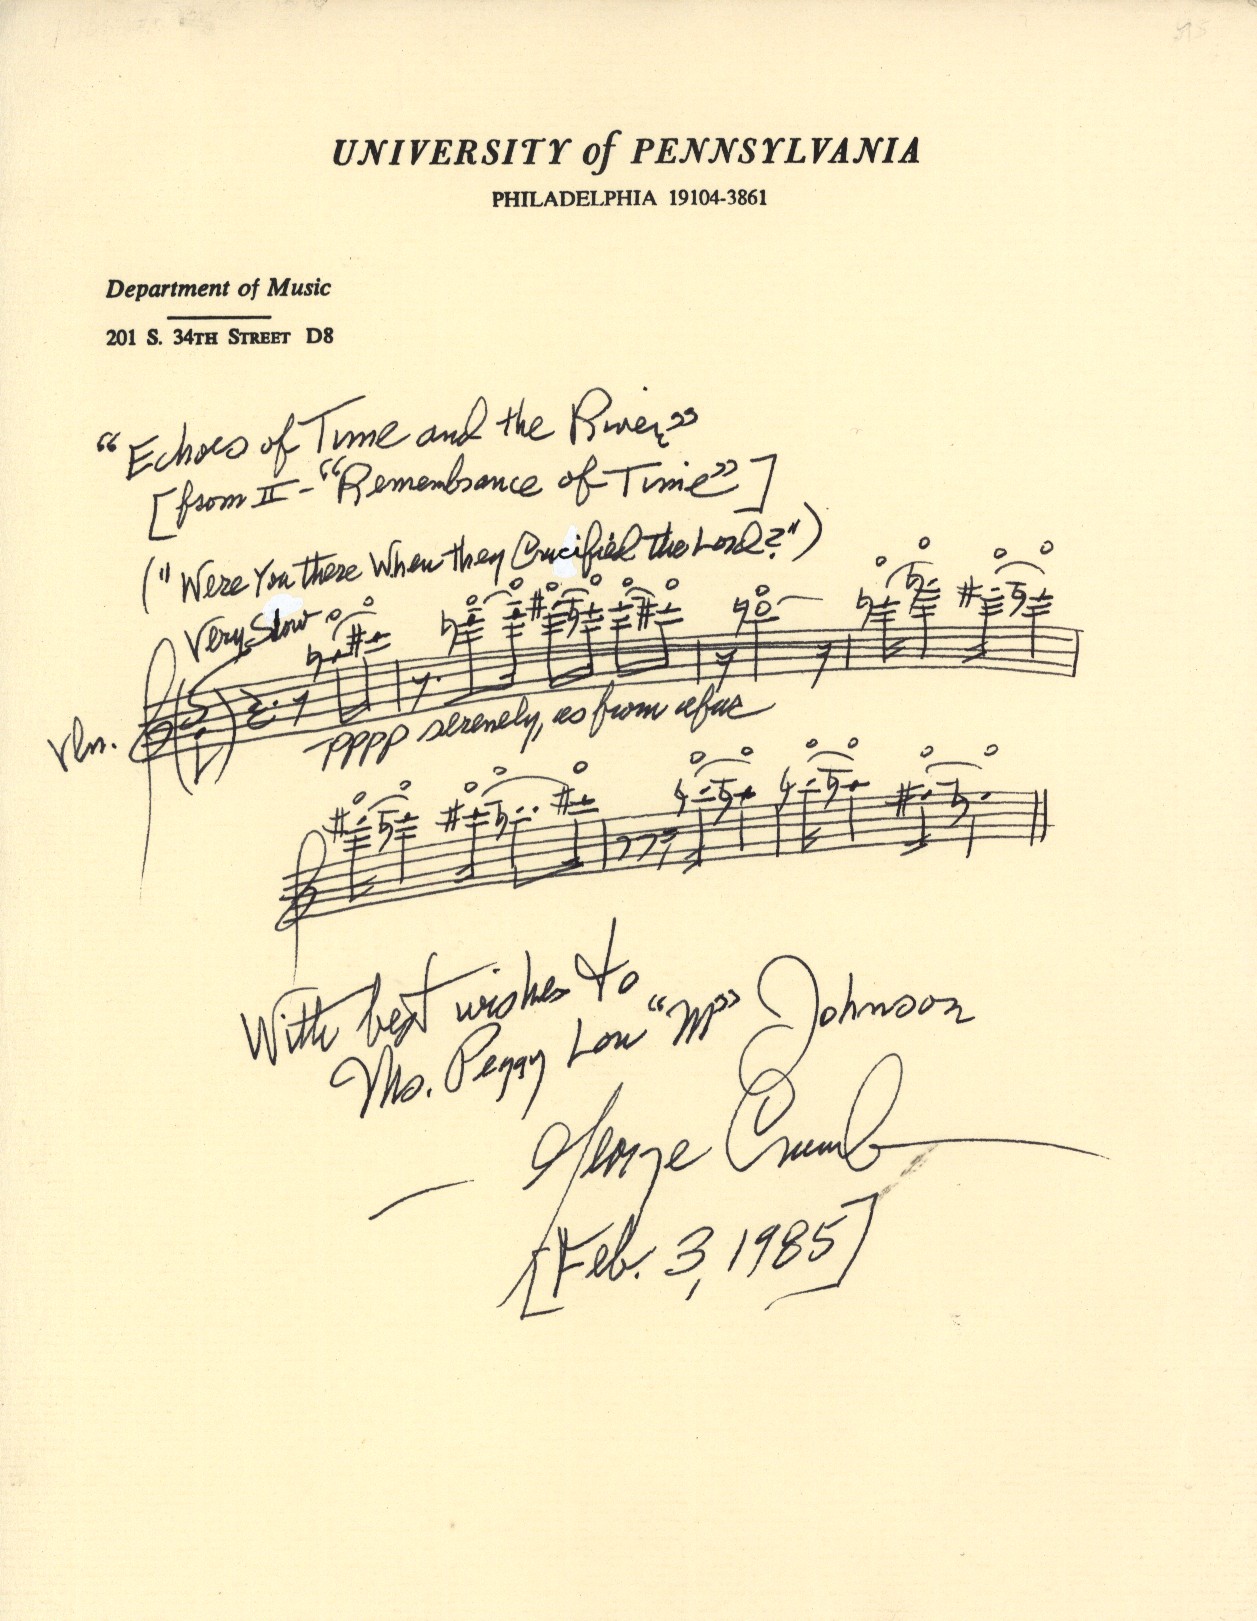 UNIVERSITY of PENNSYLVANIA
PHILADELPHIA 19104-3861
Department of Music
201 S. 34TH STREET D8
"Echoes of Time and the River"
[from II - "Remembrance of Time"]
("Were You there When they Crucified the Lord?")
Very Slow
Vln.
pppp serenely, as from afar
With best wishes to
Ms. Peggy Lou "M" Johnson
George Crumb
[Feb. 3, 1985]